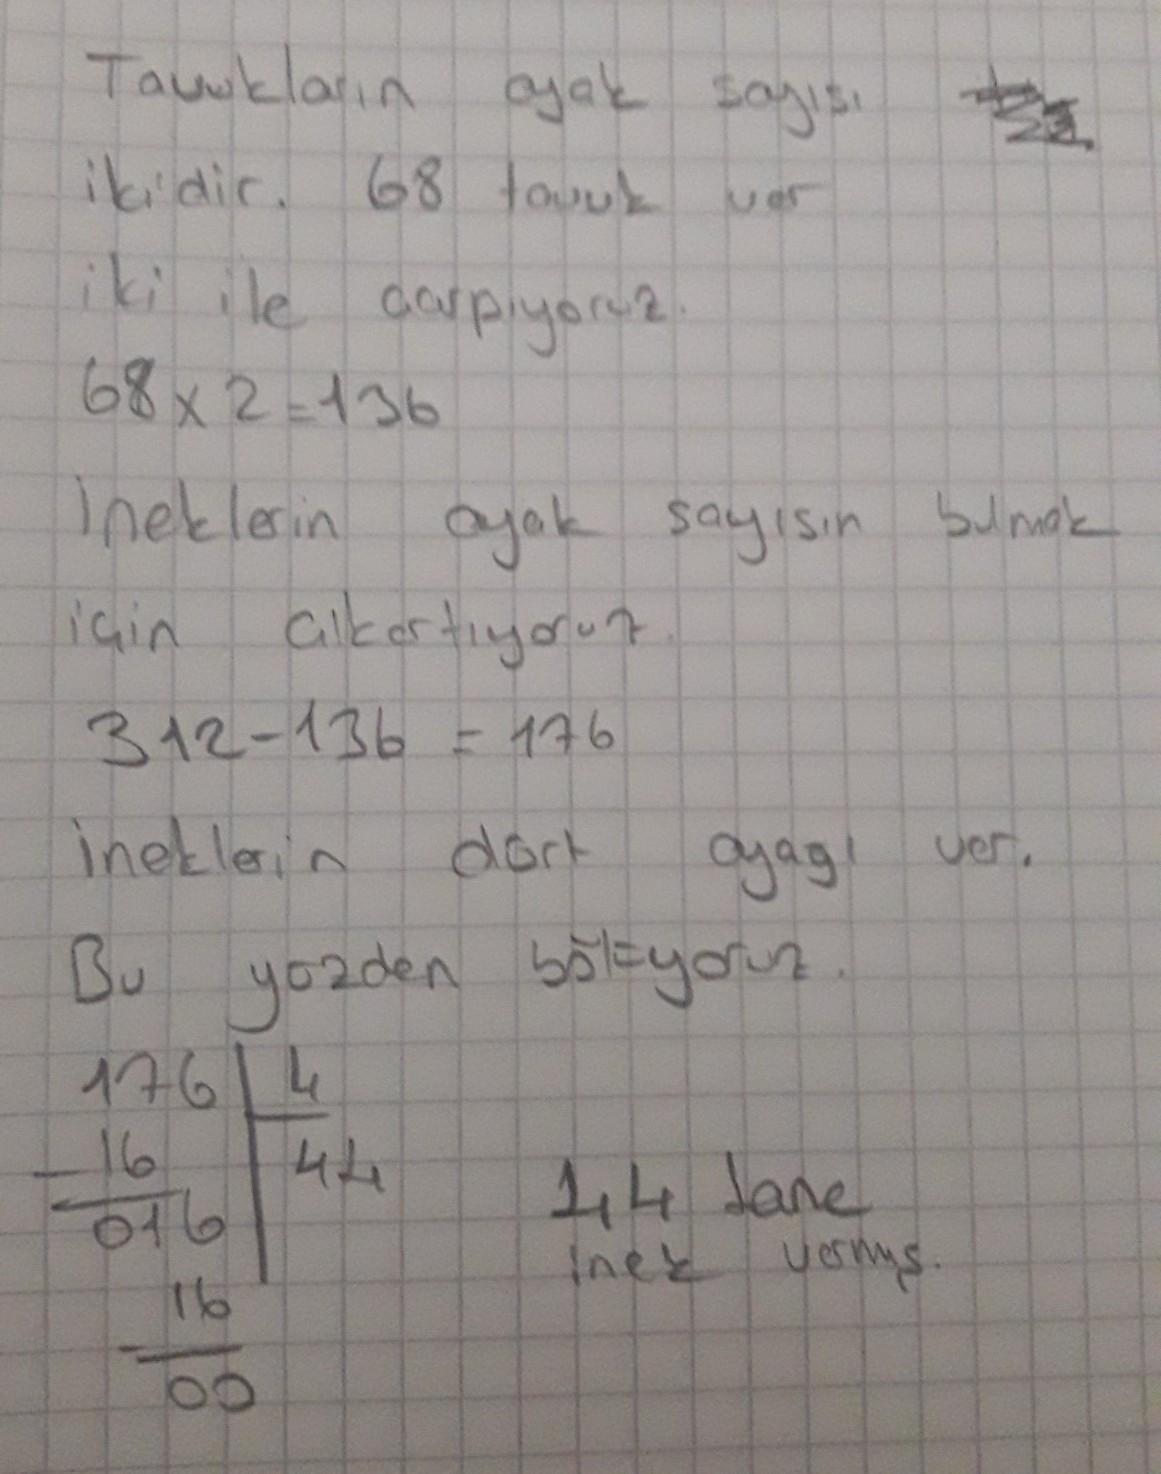 Tavukların ayak sayısı
ikidir. 68 tavuk var
iki ile çarpıyoruz.
68x2=136
ineklerin ayak sayısın bulmak
için çıkartıyoruz.
312-136 = 176
ineklerin dört ayagı var.
Bu yüzden bölüyoruz.
176 4
-16 44
016
44 tane
inek varmış.
-16
00